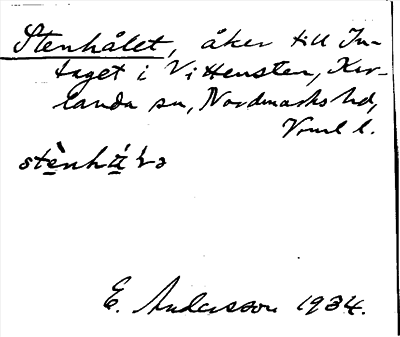 Stenhålet, åker till In-
taget i Vittensten, Kar-
landa sn, Nordmarks hd,
Vrml l.
E. Andersson 1934.